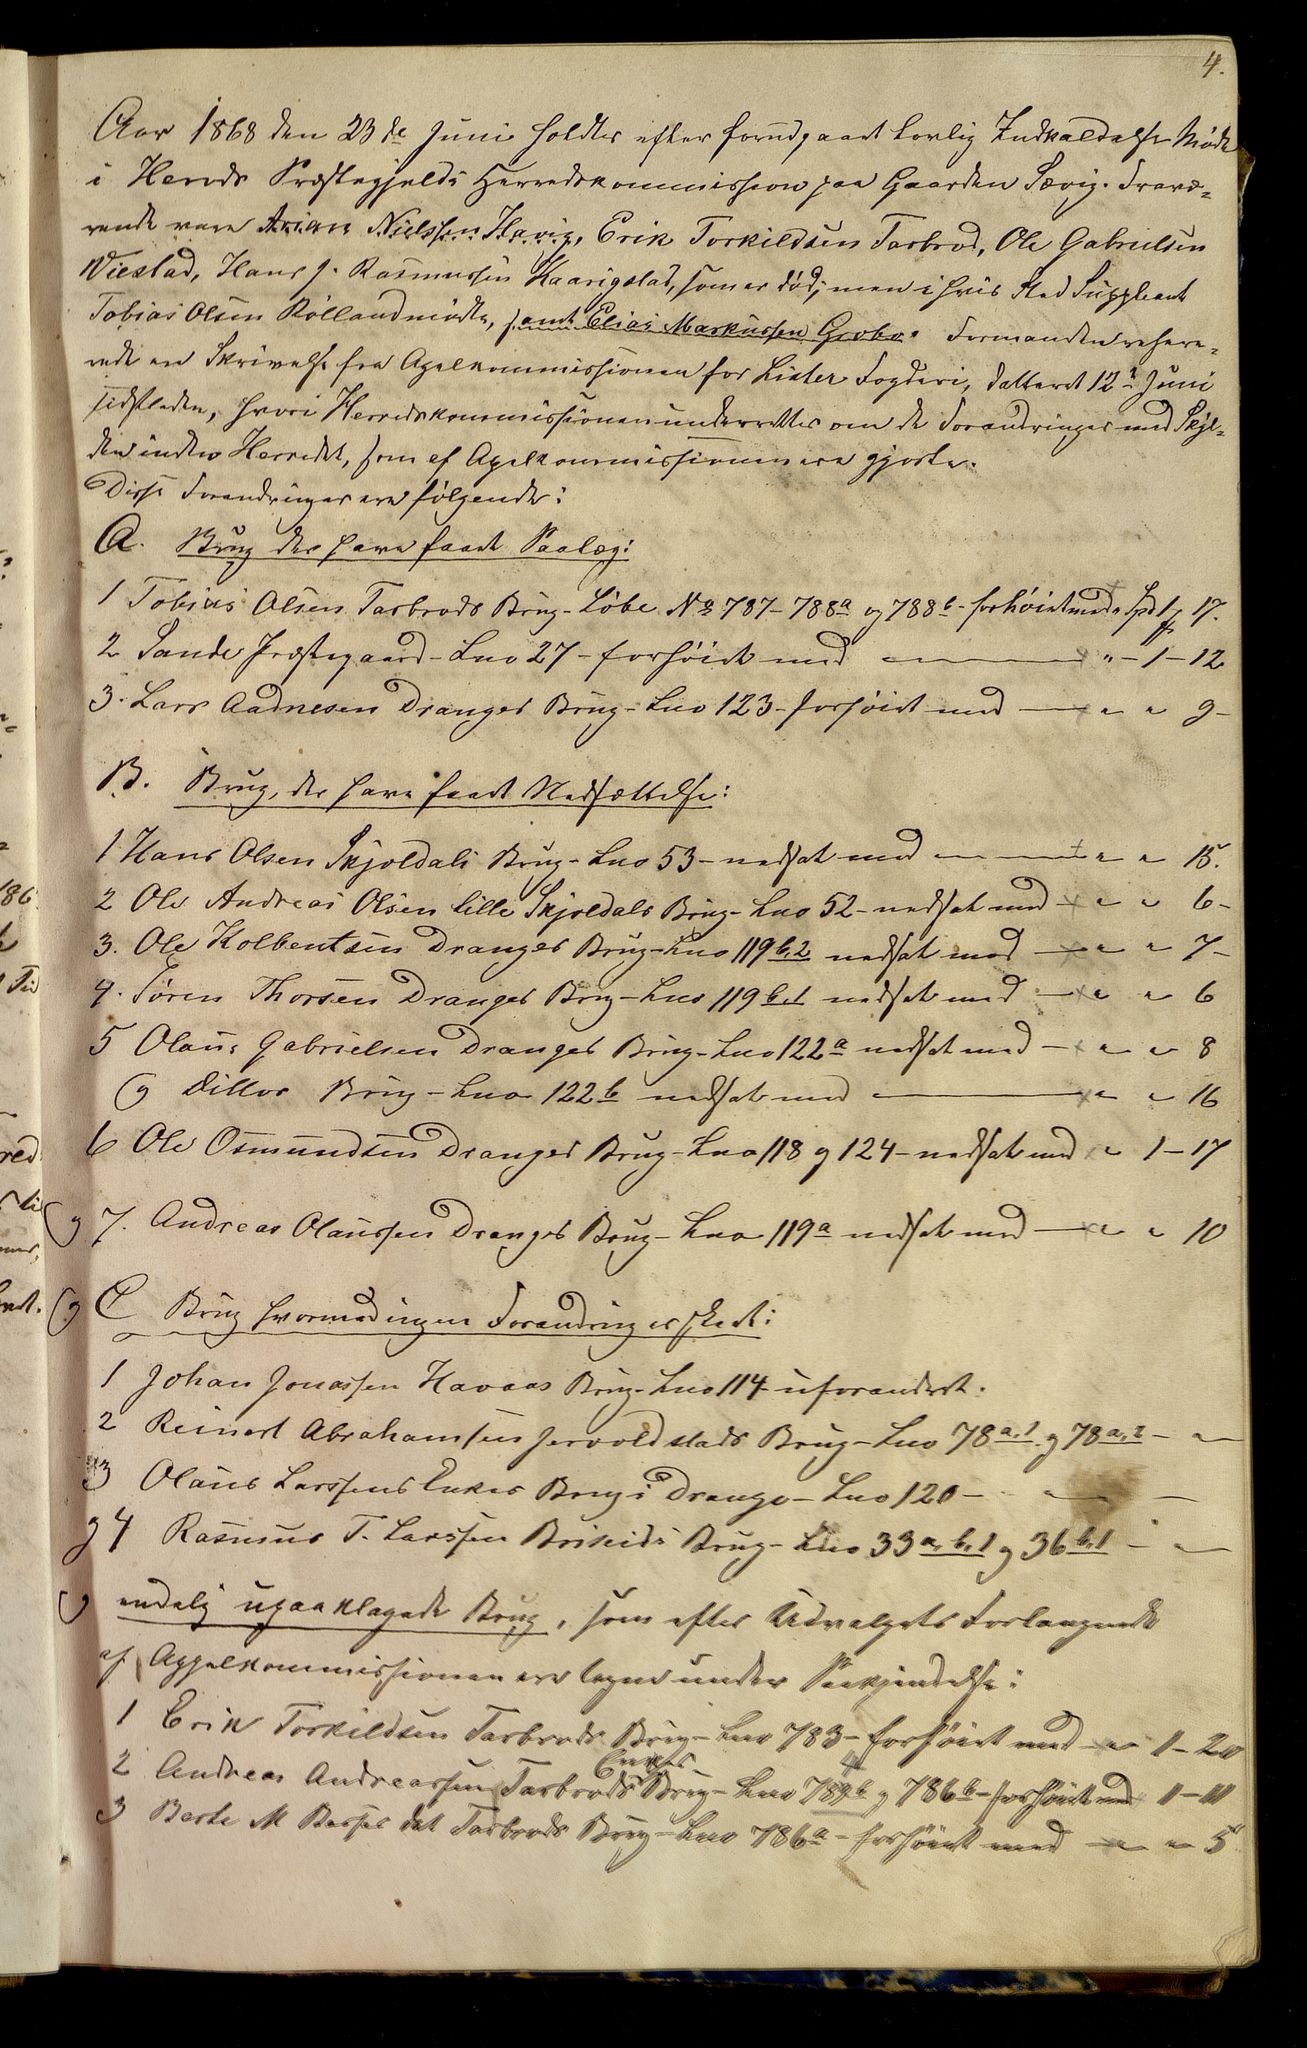 4.
Aar 1868 den 23de Juni holdtes efter forudgaaet lovlig Indkaldelse Møde
i Herreds Præstegjelds Herredskommission paa Gaarden Sævig. Fravæ-
rende vare Arian Nielssen Havig, Erik Torkildsen Tarbrod, Ole Gabrielsen
Viestad, Hans J. Rasmussen Kaarigstad, som er død; men i hvis Sted Suppleant
Tobias Olsen Røllend mødte, samt Elias Markussen Grobo. Formanden refere-
rede en Skrivelse fra Apelkommissionen for Lister Fogderi, datteret 12te Juni
sidstleden, hvori Herredskommissionen underrettes om de Forandringer med Skyl-
den inden Herredet, som af Apelkommissionen ere gjorte.
Disse Forandringer ere følgende:
A. Brug der have faaet Paalæg:
1 Tobias Olsen Tarbrods Brug - Løbe No 787 - 788a og 788b - forhøiet med " Spd 1 17.
2 Sande Præstegaard - Lno 27 - forhøiet med " - 1 - 12
3. Lars Aadnesen Dranges Brug - Lno 123 - forhøiet med " " 9 -
B. Brug, der have faaet Nedsættelse:
1 Hans Olsen Skjoldals Brug - Lno 53 - nedsat med " " 15.
2 Ole Andreas Olsen lille Skjoldals Brug - Lno 52 - nedsat med " " 6 -
3. Ole Kolbentsen Dranges Brug - Lno 119 b,2 nedsat med " " 7 -
4. Søren Thorsen Dranges Brug - Lno 119 b,1 nedsat med " " 6
5 Olaus Gabrielsen Dranges Brug - Lno 122a nedsat med " " 8
og Dittos Brug - Lno 122b nedsat med " " 16
6 Ole Osmundsen Dranges Brug - Lno 118 og 124 - nedsat med " 1 - 17
og 7. Andreas Olaussen Dranges Brug - Lno 119a nedsat med " " 10
og C Brug hvormed ingen Forandring er skeet:
1 Johan Jonassen Havaas Brug - Lno 114 - uforandret.
2 Reinert Abrahamsen Jervoldstads Brug - Lno 78 a,1 og 78 a,2 - "
3 Olaus Larssens Enkes Brug i Drange - Lno 120 - " -
og 4 Rasmus T. Larssen Briseids Brug - Lno 33 a, b,1 og 36 b,1 - "
og endelig upaaklagede Brug, som efter Udvalgets Forlangende
af Appelkommissionen ere tagne under Paakjendelse:
1 Erik Torkildsen Tarbrods Brug - Lno 783 - forhøiet med " 1 - 20
2 Andreas Andreassen Tarbrods Enkes Brug - Lno b og 786b - forhøiet med 1 -
3 Berte M Tarbrods Brug - Lno 786a - forhøiet med " " 5